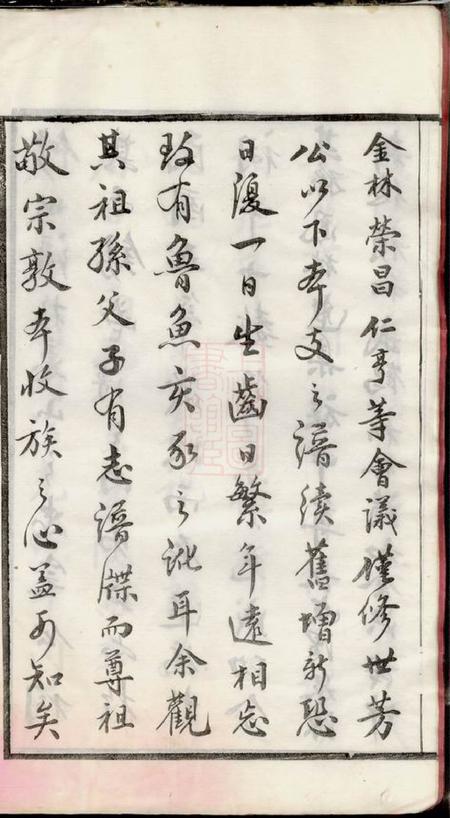 金林榮昌仁亨等會議僅修世芳
公以下本支之譜續舊增新恐
日復一日生齒日繁年遠相忘
致有魯魚亥豕之訛耳余觀
其祖孫父子有志譜牒而尊祖
敬宗敦本收族之心蓋可知矣